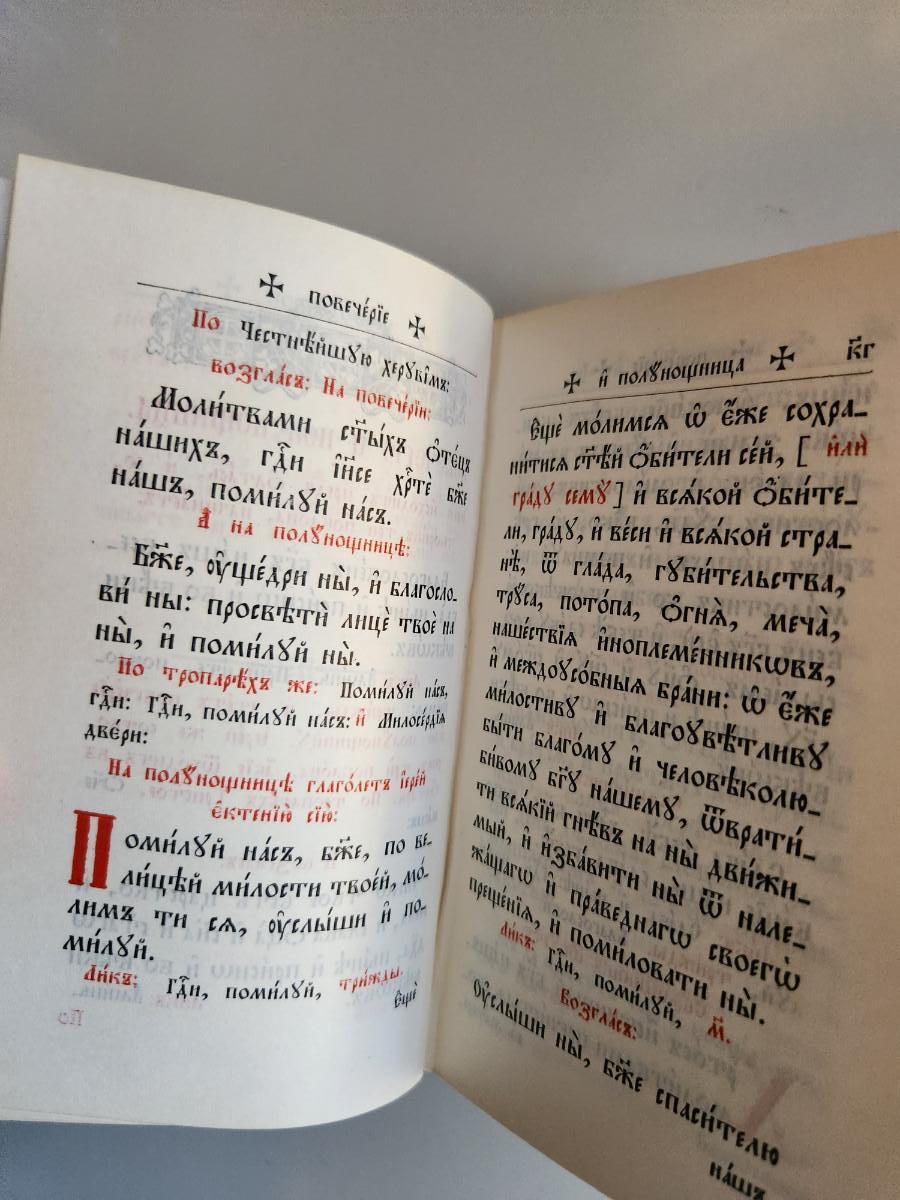 ✠ повече́рїе ✠
По Честнѣ́йшую херуві́мъ:
во́згласъ: На повече́рїи:
Моли́твами ст҃ы́хъ ѻ҆те́цъ
на́шихъ, гдⷭ҇и і҆и҃се хрⷭ҇тѐ бж҃е
на́шъ, поми́луй на́съ.
А҆ на полу́нощницѣ:
Бж҃е, ᲂу҆ще́дри ны̀, и҆ благосло-
ви́ ны: просвѣтѝ лицѐ твоѐ на
ны̀, и҆ поми́луй ны̀.
По тропарѣ́хъ же: Поми́луй на́съ,
гдⷭ҇и: Гдⷭ҇и, поми́луй на́съ: и҆ Милосе́рдїѧ
две́ри:
На полу́нощницѣ глаго́летъ і҆ере́й
є҆ктенїю̀ сїю̀:
Поми́луй на́съ, бж҃е, по ве-
ли́цѣй ми́лости твое́й, мо́-
лимъ ти сѧ, ᲂу҆слы́ши и҆ по-
ми́луй.
Ли́къ: Гдⷭ҇и, поми́луй, три́жды.
Є҆щѐ
✠ и҆ полу́нощница ✠ к҃г
Є҆щѐ мо́лимсѧ ѡ҆ є҆́же сохра-
ни́тисѧ ст҃ѣ́й ѻ҆би́тели се́й, [ и҆лѝ
гра́ду сему̀ ] и҆ всѧ́кой ѻ҆би́те-
ли, гра́ду, и҆ ве́си и҆ всѧ́кой стра-
нѣ̀, ѿ гла́да, губи́тельства,
трꙋ́са, пото́па, ѻ҆гнѧ̀, меча̀,
наше́ствїѧ и҆ноплеме́нникѡвъ,
и҆ междоусо́бныѧ бра́ни: ѡ҆ є҆́же
ми́лостиву и҆ благоувѣ́тливу
бы́ти благо́му и҆ человѣколю-
би́вому бг҃у на́шему, ѿврати́-
ти всѧ́кїй гнѣ́въ на ны̀ дви́жи-
мый, и҆ и҆зба́вити ны̀ ѿ належа́-
жа́щагѡ и҆ пра́веднагѡ своегѡ̀
преще́нїѧ, и҆ поми́ловати ны̀.
Ли́къ: Гдⷭ҇и, поми́луй, м҃.
Во́згласъ:
Оу҆слы́ши ны̀, бж҃е спаси́телю
на́шъ